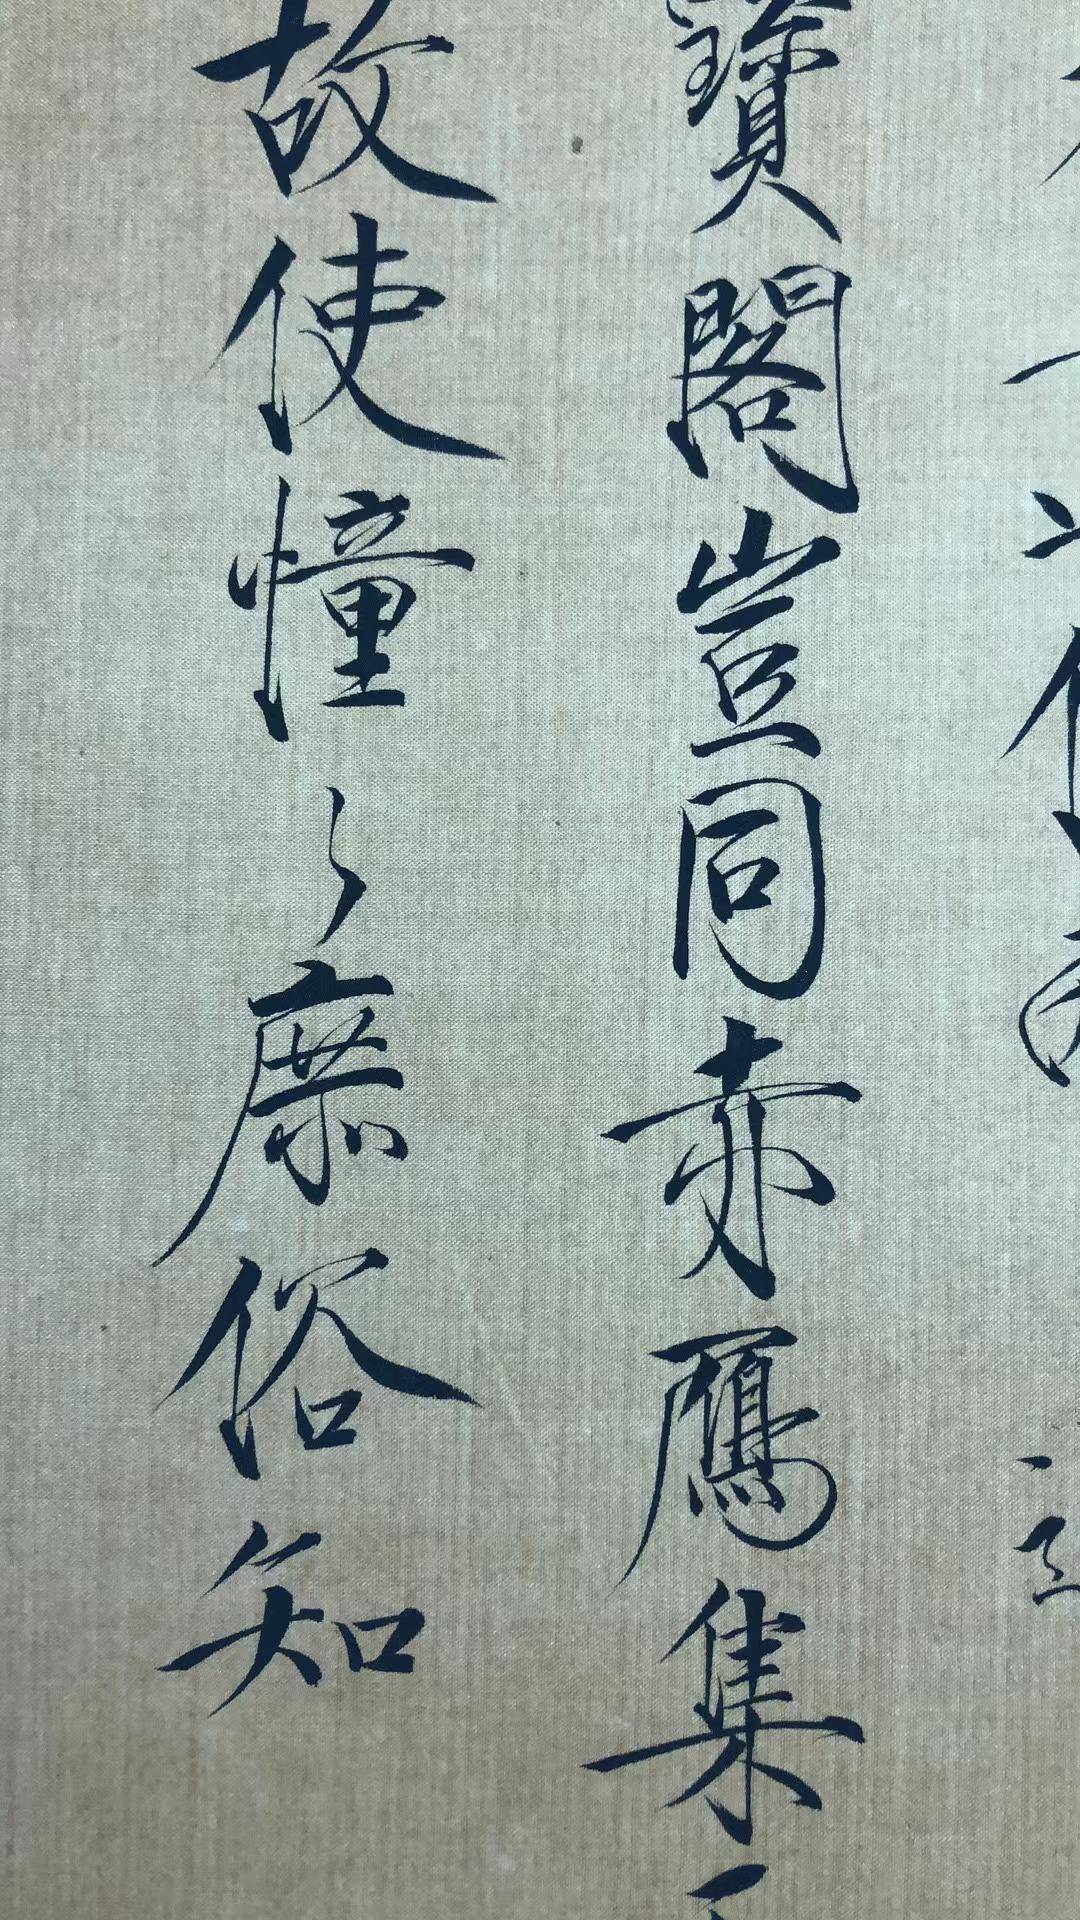 寶閣豈同赤鴈集
故使憧々庶俗知